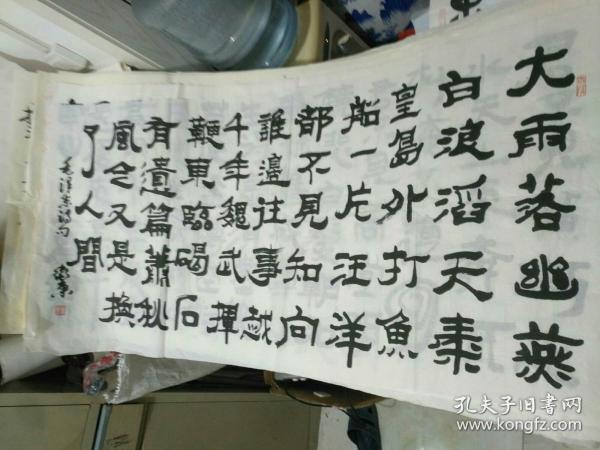 大雨落幽燕
白浪滔天秦
皇島外打魚
船一片汪洋
都不見知向
誰邊往事越
千年魏武揮
鞭東臨碣石
有遺篇蕭秋
風今又是換
了人間
毛澤東詞句
孔夫子旧書网
www.kongfz.com